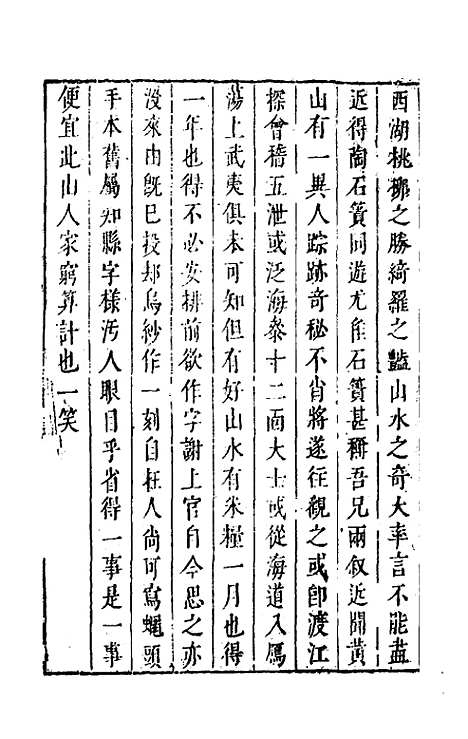 西湖桃栁之勝綺羅之豔山水之奇大率言不能盡
近得陶石簣同遊尤隹石簣甚稱吾兄兩叙近聞黃
山有一異人踪跡奇秘不肖將遂往觀之或卽渡江
探會稽五泄或泛海叅十二面大士或從海道入鴈
蕩上武夷俱未可知但有好山水有米糧一月也得
一年也得不必安排前欲作字謝上官自今思之亦
沒來由旣已投却烏紗作一刻自在人尙可寫蠅頭
手本舊屬知縣字樣汚人眼目乎省得一事是一事
便宜此山人家窮算計也一笑